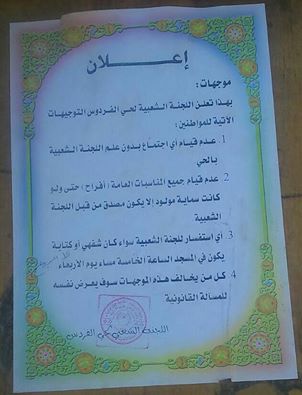 إعـــلان
موجهات :
بهذا تعلن اللجنة الشعبية لحي الفردوس التوجيهات
الآتية للمواطنين :
1. عدم قيام أي اجتماع بدون علم اللجنة الشعبية
بالحي
2. عدم قيام جميع المناسبات العامة ( أفراح ) حتى ولو
كانت سماية مولود إلا يكون مصدق من قبل اللجنة
الشعبية
3. أي استفسار للجنة الشعبية سواء كان شفهي أو كتابة
يكون في المسجد الساعة الخامسة مساء يوم الأربعاء
4. كل من يخالف هذه الموجهات سوف يعرض نفسه
للمسالة القانونية
اللجنة الشعبية حي الفردوس